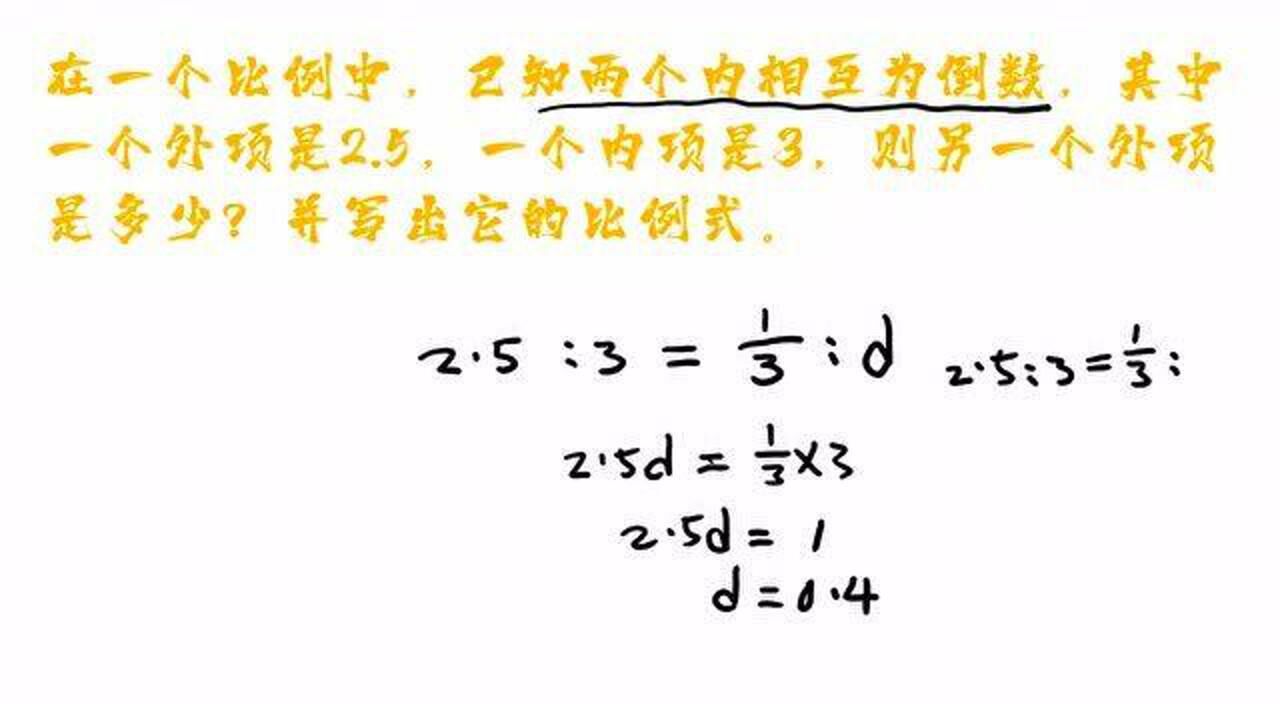 在一个比例中，已知两个内相互为倒数，其中
一个外项是2.5，一个内项是3，则另一个外项
是多少？并写出它的比例式。
2.5 : 3 = 1/3 : d
2.5 : 3 = 1/3 :
2.5d = 1/3 × 3
2.5d = 1
d = 0.4